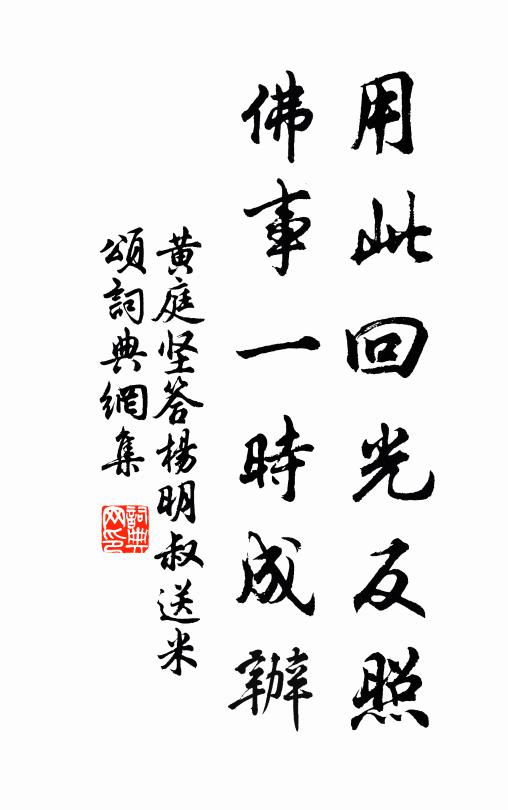 用此回光反照
佛事一時成辦
黄庭坚答楊明叔送米
頌詞典網集
詞典
网印